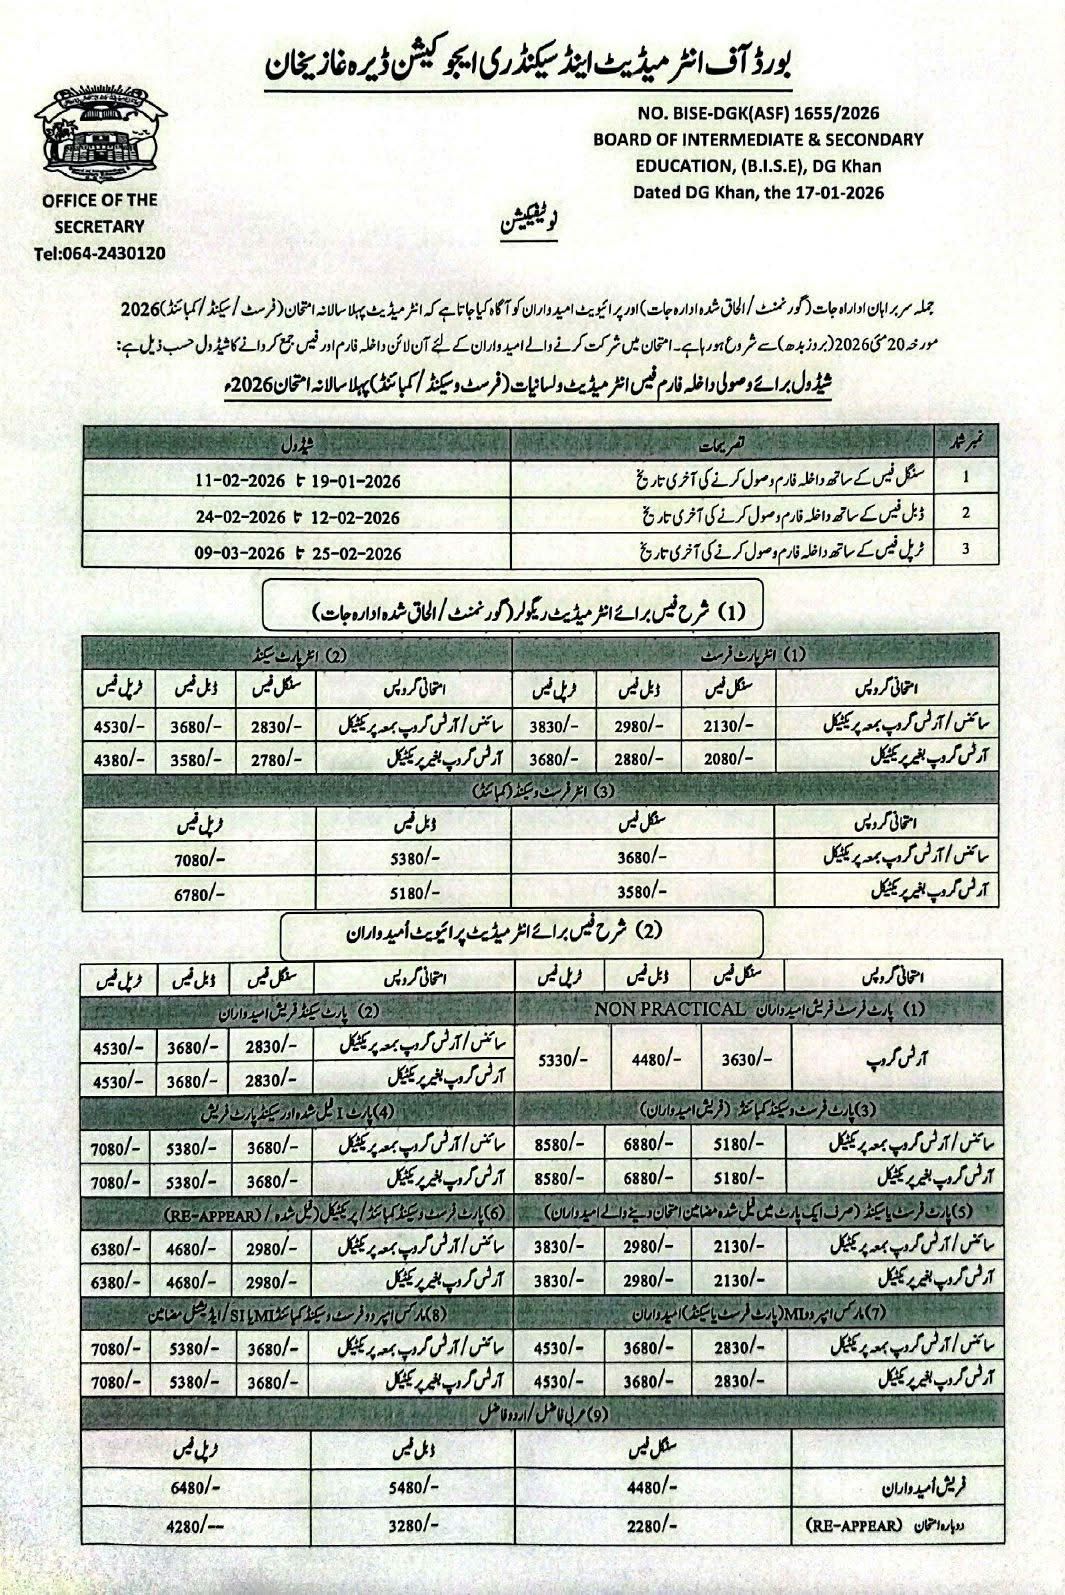 بورڈ آف انٹر میڈیٹ اینڈ سیکنڈری ایجوکیشن ڈیرہ غازیخان
NO. BISE-DGK(ASF) 1655/2026
BOARD OF INTERMEDIATE & SECONDARY
EDUCATION, (B.I.S.E), DG Khan
Dated DG Khan, the 17-01-2026
OFFICE OF THE
SECRETARY
Tel:064-2430120
نوٹیفیکیشن
جملہ سربراہان ادارہ جات (گورنمنٹ / الحاق شدہ ادارہ جات) اور پرائیویٹ امیدواران کو آگاہ کیا جاتا ہے کہ انٹر میڈیٹ پہلا سالانہ امتحان (فرسٹ / سیکنڈ / کمبائنڈ) 2026
مورخہ 20 مئی 2026 (بروز بدھ) سے شروع ہو رہا ہے۔ امتحان میں شرکت کرنے والے امیدواران کے لئے آن لائن داخلہ فارم اور فیس جمع کروانے کا شیڈول حسب ذیل ہے:
شیڈول برائے وصولی داخلہ فارم فیس انٹر میڈیٹ ولسانیات (فرسٹ و سیکنڈ / کمبائنڈ) پہلا سالانہ امتحان 2026ء
نمبر شمار تصریحات شیڈول
1 سنگل فیس کے ساتھ داخلہ فارم وصول کرنے کی آخری تاریخ 19-01-2026 تا 11-02-2026
2 ڈبل فیس کے ساتھ داخلہ فارم وصول کرنے کی آخری تاریخ 12-02-2026 تا 24-02-2026
3 ٹرپل فیس کے ساتھ داخلہ فارم وصول کرنے کی آخری تاریخ 25-02-2026 تا 09-03-2026
(1) شرح فیس برائے انٹر میڈیٹ ریگولر (گورنمنٹ / الحاق شدہ ادارہ جات)
(1) انٹر پارٹ فرسٹ (2) انٹر پارٹ سیکنڈ
امتحانی گروپس سنگل فیس ڈبل فیس ٹرپل فیس امتحانی گروپس سنگل فیس ڈبل فیس ٹرپل فیس
سائنس / آرٹس گروپ بمعہ پریکٹیکل 2130/- 2980/- 3830/- سائنس / آرٹس گروپ بمعہ پریکٹیکل 2830/- 3680/- 4530/-
آرٹس گروپ بغیر پریکٹیکل 2080/- 2880/- 3680/- آرٹس گروپ بغیر پریکٹیکل 2780/- 3580/- 4380/-
(3) انٹر فرسٹ و سیکنڈ (کمبائنڈ)
امتحانی گروپس سنگل فیس ڈبل فیس ٹرپل فیس
سائنس / آرٹس گروپ بمعہ پریکٹیکل 3680/- 5380/- 7080/-
آرٹس گروپ بغیر پریکٹیکل 3580/- 5180/- 6780/-
(2) شرح فیس برائے انٹر میڈیٹ پرائیویٹ اُمیدواران
امتحانی گروپس سنگل فیس ڈبل فیس ٹرپل فیس امتحانی گروپس سنگل فیس ڈبل فیس ٹرپل فیس
(1) پارٹ فرسٹ فریش امیدواران NON PRACTICAL (2) پارٹ سیکنڈ فریش امیدواران
آرٹس گروپ 3630/- 4480/- 5330/- سائنس / آرٹس گروپ بمعہ پریکٹیکل 2830/- 3680/- 4530/-
آرٹس گروپ بغیر پریکٹیکل 2830/- 3680/- 4530/-
(3) پارٹ فرسٹ و سیکنڈ کمبائنڈ - (فریش امیدواران) (4) پارٹ I فیل شدہ اور سیکنڈ پارٹ فریش
سائنس / آرٹس گروپ بمعہ پریکٹیکل 5180/- 6880/- 8580/- سائنس / آرٹس گروپ بمعہ پریکٹیکل 3680/- 5380/- 7080/-
آرٹس گروپ بغیر پریکٹیکل 5180/- 6880/- 8580/- آرٹس گروپ بغیر پریکٹیکل 3680/- 5380/- 7080/-
(5) پارٹ فرسٹ یا سیکنڈ (صرف ایک پارٹ میں فیل شدہ مضامین امتحان دینے والے امیدواران) (6) پارٹ فرسٹ و سیکنڈ کمبائنڈ / پریکٹیکل (فیل شدہ / RE-APPEAR)
سائنس / آرٹس گروپ بمعہ پریکٹیکل 2130/- 2980/- 3830/- سائنس / آرٹس گروپ بمعہ پریکٹیکل 2980/- 4680/- 6380/-
آرٹس گروپ بغیر پریکٹیکل 2130/- 2980/- 3830/- آرٹس گروپ بغیر پریکٹیکل 2980/- 4680/- 6380/-
(7) مارکس امپروو MI (پارٹ فرسٹ یا سیکنڈ) امیدواران (8) مارکس امپروو فرسٹ و سیکنڈ کمبائنڈ MI یا SI / ایڈیشنل مضامین
سائنس / آرٹس گروپ بمعہ پریکٹیکل 2830/- 3680/- 4530/- سائنس / آرٹس گروپ بمعہ پریکٹیکل 3680/- 5380/- 7080/-
آرٹس گروپ بغیر پریکٹیکل 2830/- 3680/- 4530/- آرٹس گروپ بغیر پریکٹیکل 3680/- 5380/- 7080/-
(9) عربی فاضل / اردو فاضل
سنگل فیس ڈبل فیس ٹرپل فیس
فریش اُمیدواران 4480/- 5480/- 6480/-
دوبارہ امتحان (RE-APPEAR) 2280/- 3280/- 4280/--